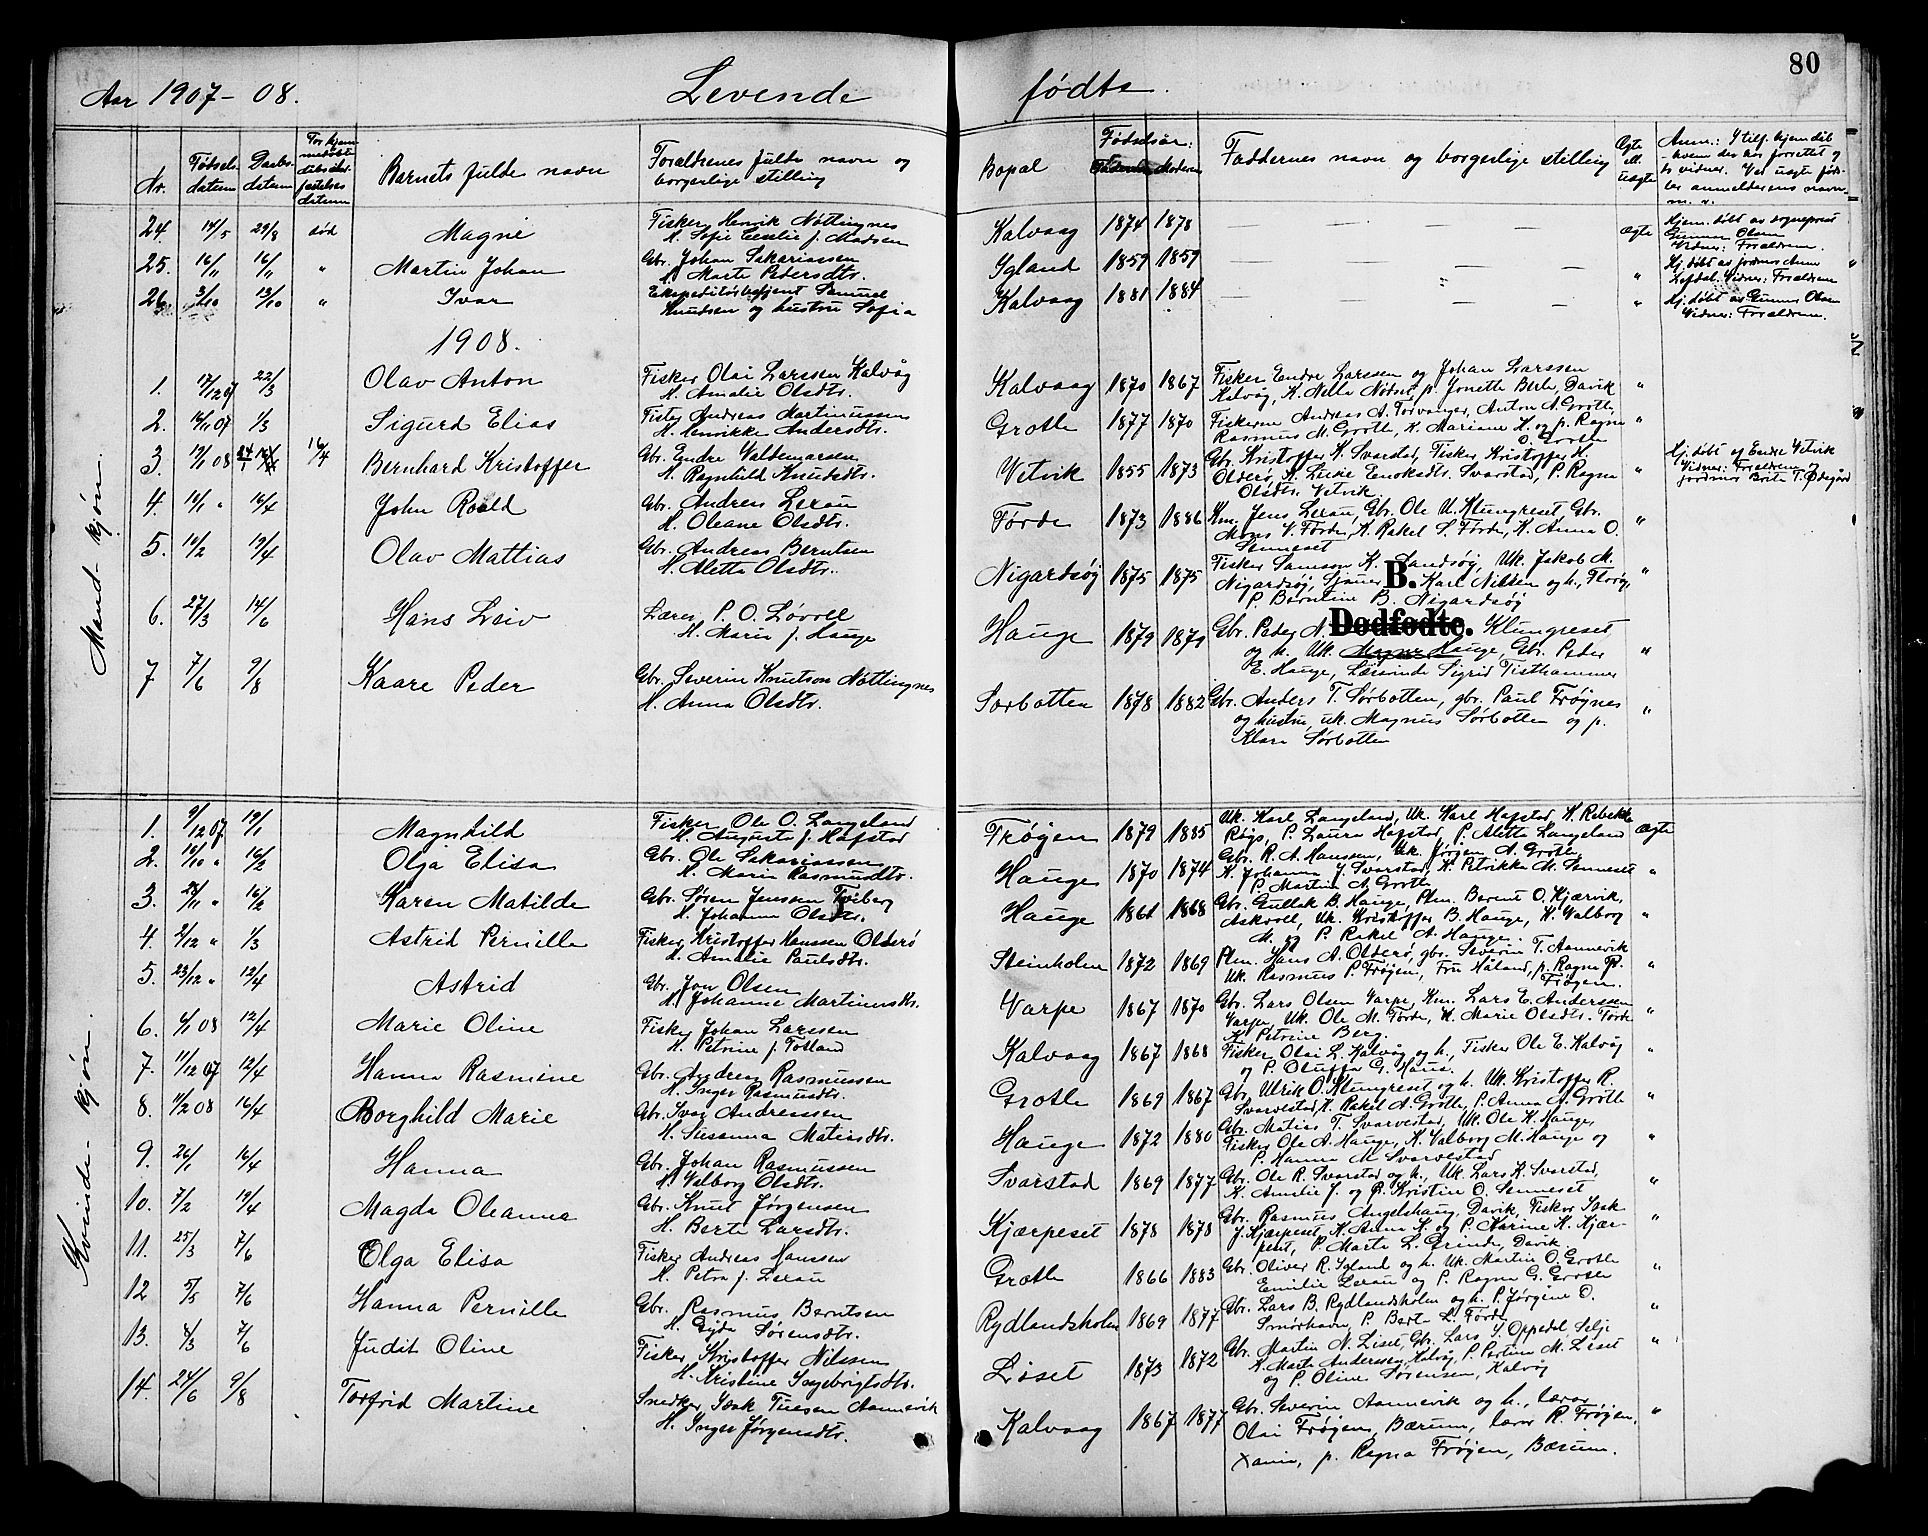 80
Aar 1907-08. Levende fødte.
Nr. Fødsels datum Daabs datum For hjemmedøbte daabsstadfæstelses datum Barnets fulde navn Forældrenes fulde navn og borgerlige stilling Bopæl Fødselsaar: Faderens Moderens Faddernes navn og borgerlige stilling Ægte ell. uægte Anm.: I tilf. hjemdåb
Mand-kjøn.
24. 14/5 29/8 død Magne Fisker Henrik Nøttingnes Kalvaag 1874 1878 — — — — Ægte Hjem. døbt av sogneprest
H. Sofie Emilie f. Madsen Gunnar Olsen
Vidner: Forældrene.
25. 16/11 16/11 " Martin Johan Gbr. Johan Sakariassen Igland 1859 1859 — — — — " Hj. døbt av jordmor Anne
H. Marte Pedersdtr. Lefdal. Vidner: Forældrene
26 3/10 13/10 " Ivar Ekspeditørbetjent Samuel Kalvaag 1881 1884 — — — — " Hj. døbt av Gunnar Olsen
Knudsen og hustru Sofia Vidner: Forældrene.
1908.
1. 17/12 07 22/3 Olav Anton Fisker Olai Larssen Kalvåg Kalvaag 1870 1867 Fisker Endre Larssen og Johan Larssen "
H. Amalie Olsdtr. Kalvåg, K. Nella Nødset, p. Jonette Berle, Davik
2. 14/11 07 1/3 Sigurd Elias Fisker Andreas Martinussen Grotle 1877 1870 Fiskerne Andreas A. Torvanger, Anton A. Grotle, "
H. Henrikke Andersdtr. Rasmus M. Grotle, K. Mariane K. og p. Ragna
O. Grotle
3. 19/1 08 24/1 16/4 Bernhard Kristoffer Gbr. Endre Valdemarsen Vetvik 1855 1873 Gbr. Kristoffer K. Svarstad, Fisker Kristoffer H. " Hj. døbt af Endre Vetvik
H. Ragnhild Knutsdtr. Olderø, K. Lucie Enoksdtr. Svarstad, P. Ragna Vidner: Forældrene og
Olsdtr. Vetvik jordmor Brita T. Ødegård
4. 14/1 " 16/4 John Roald Gbr. Andreas Lerau Førde 1873 1886 Km. Jens Lerau, Gbr. Ole U. Klungreset, Gbr. "
H. Oleane Olsdtr. Mons V. Førde, K. Rakel S. Førde, K. Anna O.
Senneset
5. 14/2 19/4 Olav Mattias Gbr. Andreas Berntsen Nigardsøy 1875 1875 Fisker Samson K. Landsøy, Uk. Jakob M. "
H. Aletta Olsdtr. Nigardsøy, Sjauer B. Karl Nilsen og h., Florø,
P. Berntine B. Nigardsøy
6. 27/3 14/6 Hans Leiv Lærer P. O. Løvoll Hauge 1879 1879 Gbr. Peder A. Dødfødte. Klungreset
H. Marie f. Hauge og h. Uk. Magnus Hauge, Gbr. Peder "
E. Hauge, Lærerinde Sigrid Tisthammer
7 7/6 9/8 Kaare Peder Gbr. Severin Knutson Nøttingnes Sørbotten 1878 1882 Gbr. Anders T. Sørbotten, gbr. Paul Frøynes "
H. Anna Olsdtr. og hustru, uk. Magnus Sørbotten og p.
Klara Sørbotten
Kvinde-kjøn.
1. 9/12 07 19/1 Magnhild Fisker Ole O. Langeland Frøyen 1879 1885 Uk. Karl Langeland, Uk. Karl Hafstad, K. Rebekka Ægte
H. Augusta f. Hafstad P. Laura Hafstad, P. Aletta Langeland
2. 10/10 " 16/2 Olga Elisa Gbr. Ole Sakariassen Hauge 1870 1874 Gbr. R. A. Hanssen, Uk. Jørgen A. Grotle, "
H. Marie Rasmusdtr. K. Johanna J. Svarstad, K. Petrikke M. Senneset
P. Martine A. Grotle
3. 28/11 " 16/2 Karen Matilde Gbr. Søren Jenssen Tviberg Hauge 1861 1868 Gbr. Gullak B. Hauge, Plm. Berent O. Kjærvik, "
H. Johanne Olsdtr. Askvoll, Uk. Kristoffer B. Hauge, K. Valborg
M. og P. Rakel A. Hauge.
4. 2/12 " 1/3 Astrid Pernille Fisker Kristoffer Hanssen Olderø Steinholm 1872 1869 Plm. Hans A. Olderø, gbr. Severin T. Aannevik "
H. Amalie Paulsdtr. Uk. Rasmus P. Frøyen, Fru Håland, p. Ragna P.
Frøyen.
5. 23/12 " 12/4 Astrid Gbr. Jon Olsen Varpe 1867 1870 Gbr. Lars Olsen Varpe, Km. Lars E. Anderssen "
H. Johanne Martinusdtr. Varpe, Uk. Ole M. Førde, K. Marie Olsdtr. Førde
K. Petrine Berg.
6. 4/1 08 12/4 Marie Oline Fisker Johan Larssen Kalvaag 1867 1868 Fisker Olai L. Kalvåg og h., Fisker Ole E. Kalvåg "
H. Petrine f. Totland og P. Oluffa G. Haus.
7. 11/12 07 12/4 Hanna Rasmine Gbr. Andreas Rasmussen Grotle 1869 1867 Gbr. Ulrik O. Klungreset og h. Uk. Kristoffer R. "
H. Inger Rasmusdtr. Svarvestad, K. Rakel A. Grotle, P. Anna A. Grotle
8. 11/2 08 16/4 Borghild Marie Gbr. Ivar Andreassen Hauge 1872 1880 Gbr. Matias T. Svarvestad, Uk. Ole K. Hauge, "
H. Susanna Matiasdtr. Fisker Ole A. Hauge, K. Valborg M. Hauge og
P. Hanna M. Svarvestad
9. 26/1 16/4 Hanna Gbr. Johan Rasmussen Svarstad 1869 1877 Gbr. Ole R. Svarstad og h., Uk. Lars K. Svarstad, "
H. Valborg Olsdtr. K. Amalie J. og P. Kristine O. Senneset
10. 7/2 19/4 Magda Oleanna Gbr. Knut Jørgensen Kjærpeset 1878 1878 Gbr. Rasmus Angelshaug, Davik, Fisker Isak "
H. Berte Larsdtr. J. Kjærpeset, K. Anna K. og P. Karine K. Kjær-
peset, P. Marta L. Grinde, Davik.
11. 25/3 7/6 Olga Elisa Fisker Andreas Hanssen Grotle 1866 1883 Gbr. Oliver R. Igland og h. Uk. Martin O. Grotle "
H. Petra f. Lerau Emilie Lerau og P. Ragna G. Grotle
12 5/5 7/6 Hanna Pernille Gbr. Rasmus Berntsen Rydlandsholm 1869 1877 Gbr. Lars B. Rydlandsholm og h. P. Jørgine O. "
H. Gyda Sørensdtr. Smørhavn, P. Berta L. Førde
13. 4/3 7/6 Judit Oline Fisker Kristoffer Nilssen Løset 1873 1872 Gbr. Martin N. Løset, Gbr. Lars S. Oppedal, Selje "
H. Kristine Ingebrigtsdtr. K. Marta Anderssen, Kalvåg, P. Pertine M. Løset
og P. Oline Sørensen, Kalvåg
14. 24/6 9/8 Torfrid Martine Snedker Isak Tuesen Aannevik Kalvaag 1867 1877 Gbr. Severin Aannevik og h., lærer "
H. Inger Jørgensdtr. Olai Frøyen, Bærum, lærer R. Frøyen,
p. Ragna Frøyen, Bærum.